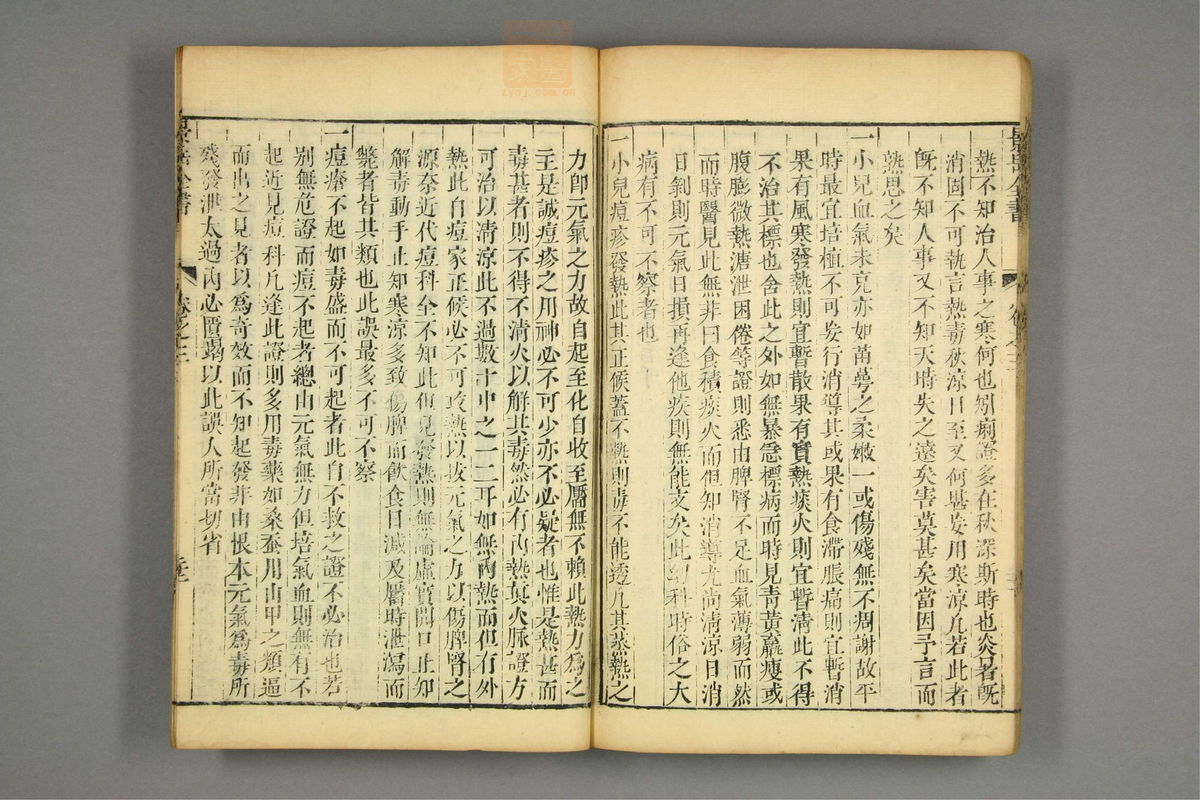 景岳全書
熱不知治人事之寒何也矧痢證多在秋深斯時也炎暑既
消固不可執言熱毒秋涼日至又何堪妄用寒涼凡若此者
旣不知人事又不知天時失之遠矣害莫甚矣當因予言而
熱思之矣
一小兒血氣未充亦如萌蕚之柔嫩一或傷殘無不凋謝故平
時最宜培植不可妄行消導其或果有食滯脹痛則宜暫消
果有風寒發熱則宜暫散果有實熱痰火則宜暫清此不得
不治其標也舍此之外如無暴急標病而時見青黃羸瘦或
腹膨微熱溏泄困倦等證則悉由脾腎不足血氣薄弱而然
而時醫見此無非曰食積痰火而但知消導尤尚清涼日消
日剝則元氣日損再逢他疾則無能支矣此幼科時俗之大
病有不可不察者也
一小兒痘疹發熱此其正候蓋不熱則毒不能透凡其蒸熱之
力卽元氣之力故自起至化自收至靨無不賴此熱力爲之
主是誠痘疹之用神必不可少亦不必疑者也惟是熱甚而
毒甚者則不得不清火以解其毒然必有內熱眞火脉證方
可治以清涼此不過數十中之一二耳如無內熱而但有外
熱此自痘家正候必不可攻熱以拔元氣之力以傷脾腎之
源奈近代痘科全不知此但見發熱則無論虛實開口止知
解毒動手止知寒涼多致傷脾而飲食日減及靨時泄瀉而
斃者皆其類也此誤最多不可不察
一痘瘡不起如毒盛而不可起者此自不救之證不必治也若
別無危證而痘不起者總由元氣無力但培氣血則無有不
起近見痘科凡逢此證則多用毒藥如桑蚕用山甲之類逼
而出之見者以爲奇效而不知起發非由根本元氣爲毒所
殘發泄太過內必匱竭以此誤人所當切省
景岳全書
卷之三